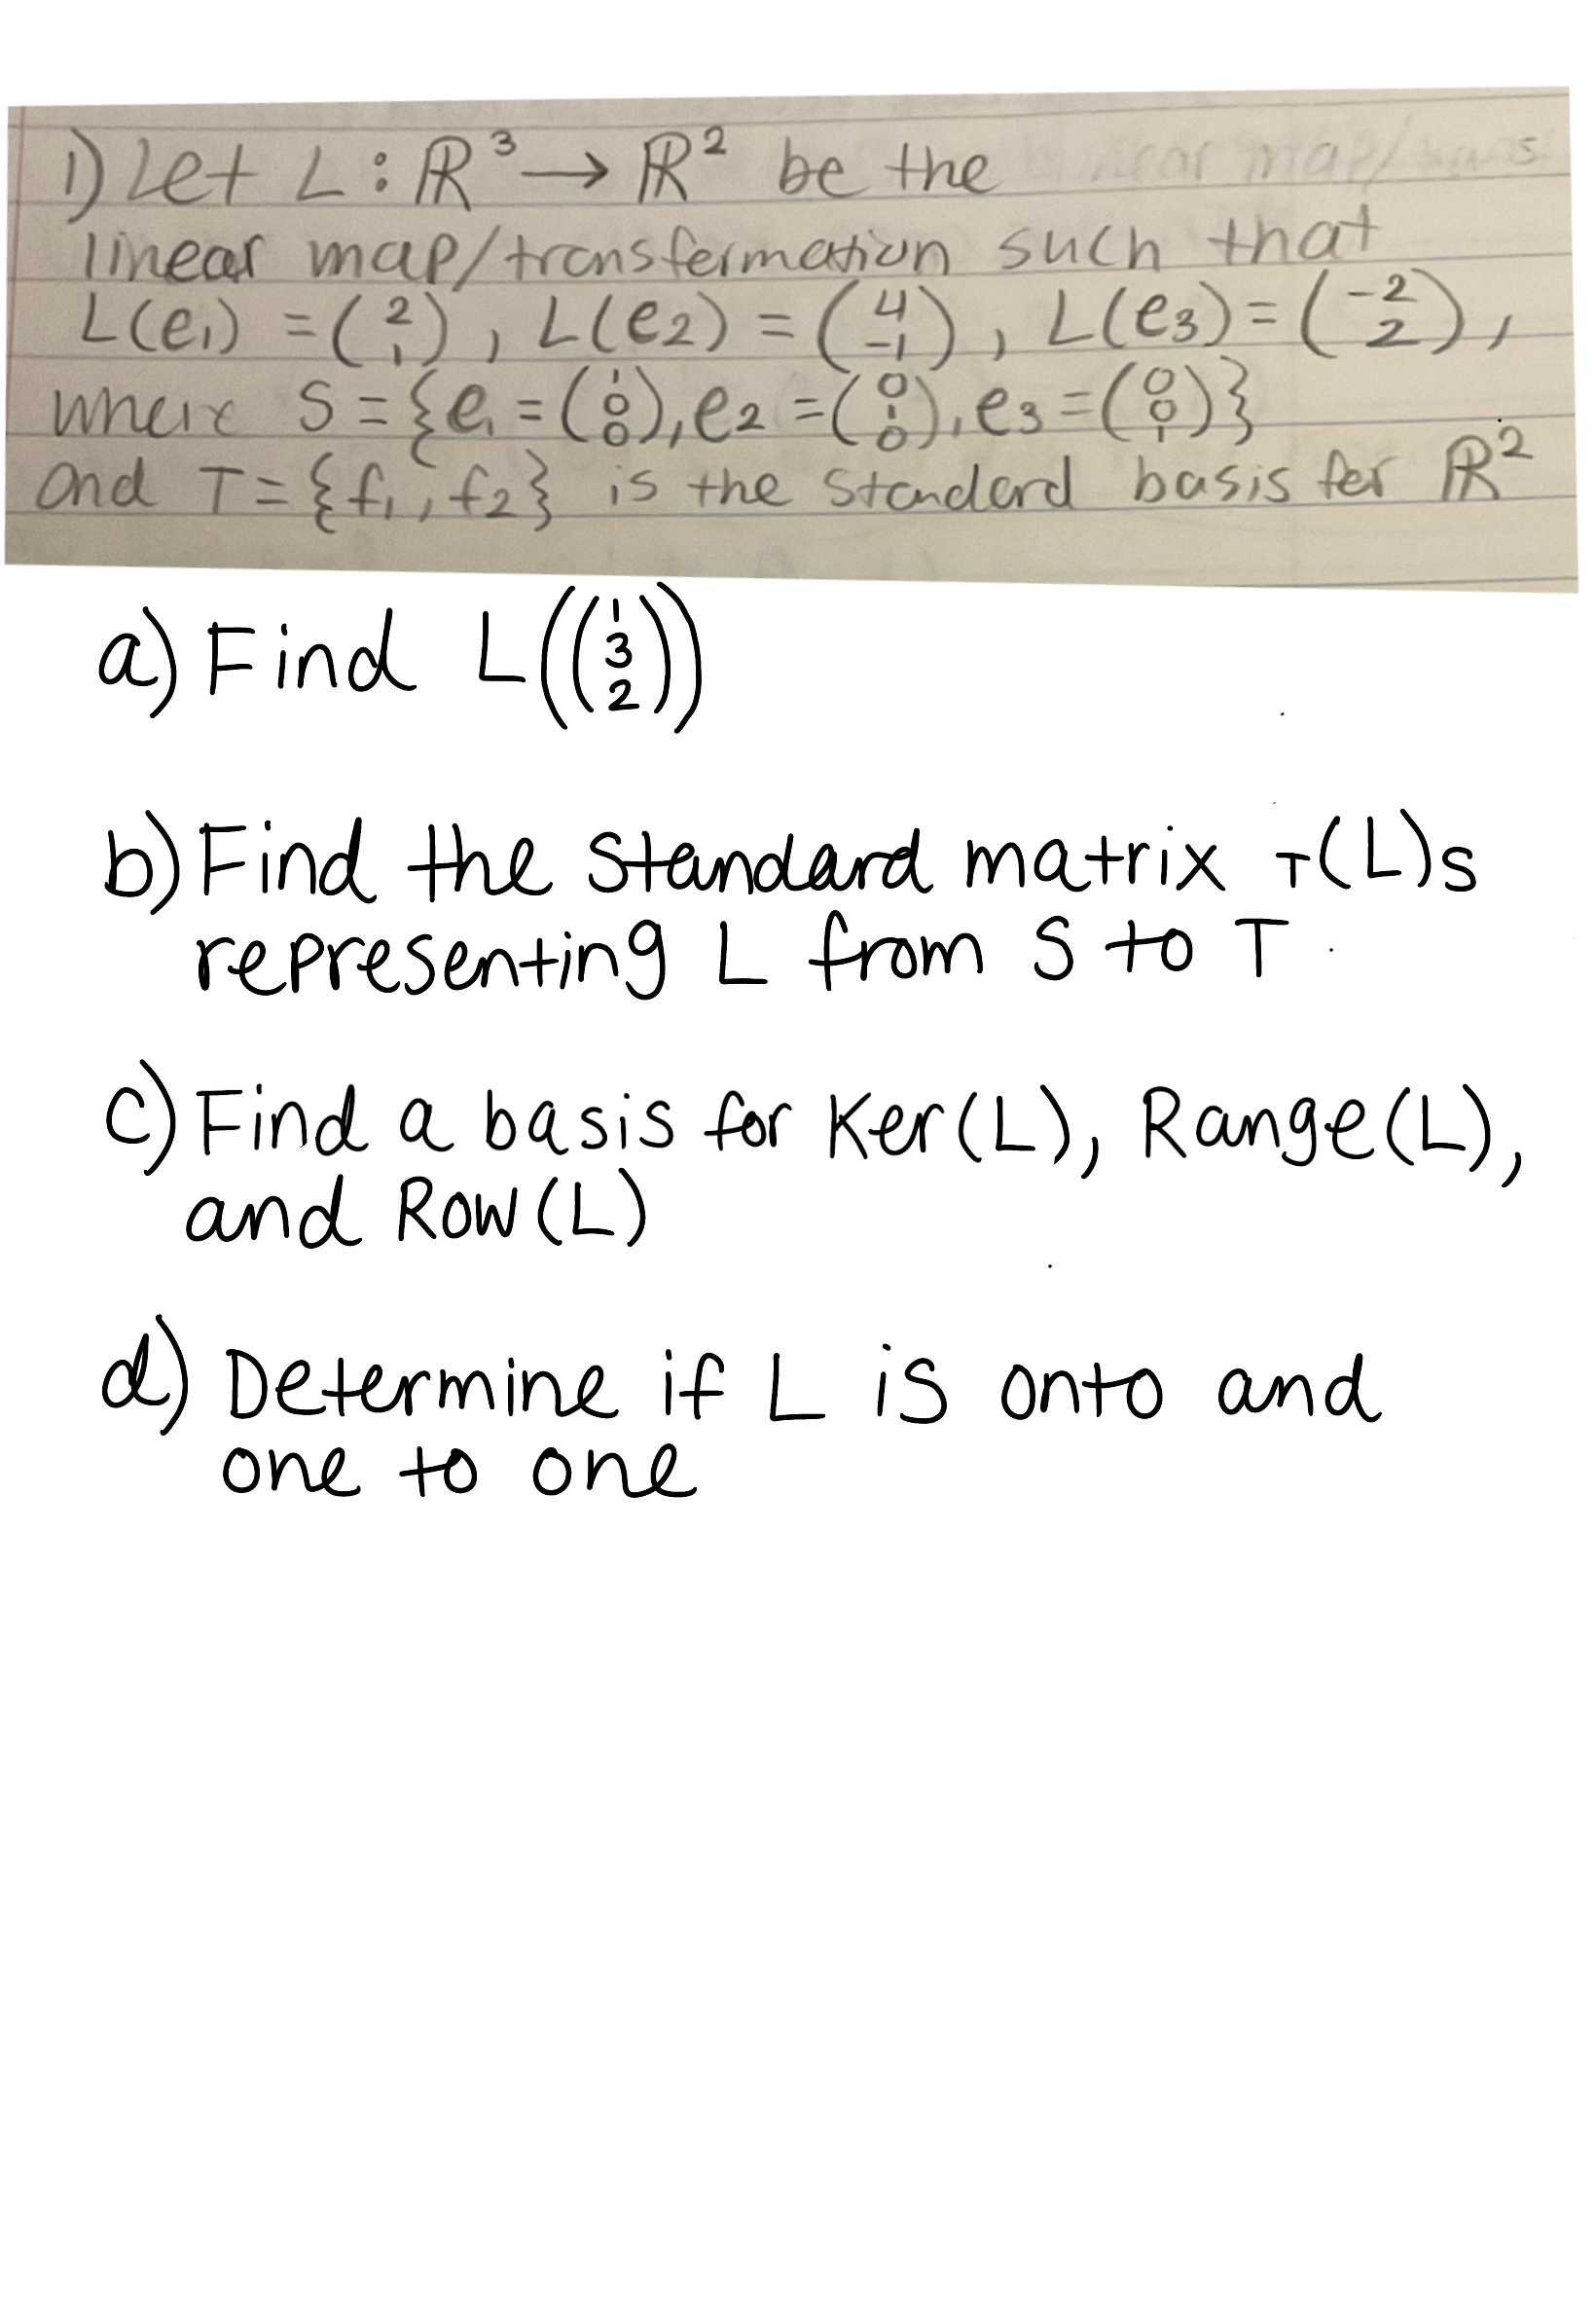 1) Let L : ℝ³ → ℝ² be the
linear map/transformation such that
L(e₁) = (2 1), L(e₂) = (4 -1), L(e₃) = (-2 2),
where S = {e₁ = (1 0 0), e₂ = (0 1 0), e₃ = (0 0 1)}
and T = {f₁, f₂} is the standard basis for ℝ²
a) Find L((1 3 2))
b) Find the standard matrix T(L)s
representing L from S to T
c) Find a basis for Ker(L), Range(L),
and Row(L)
d) Determine if L is onto and
one to one